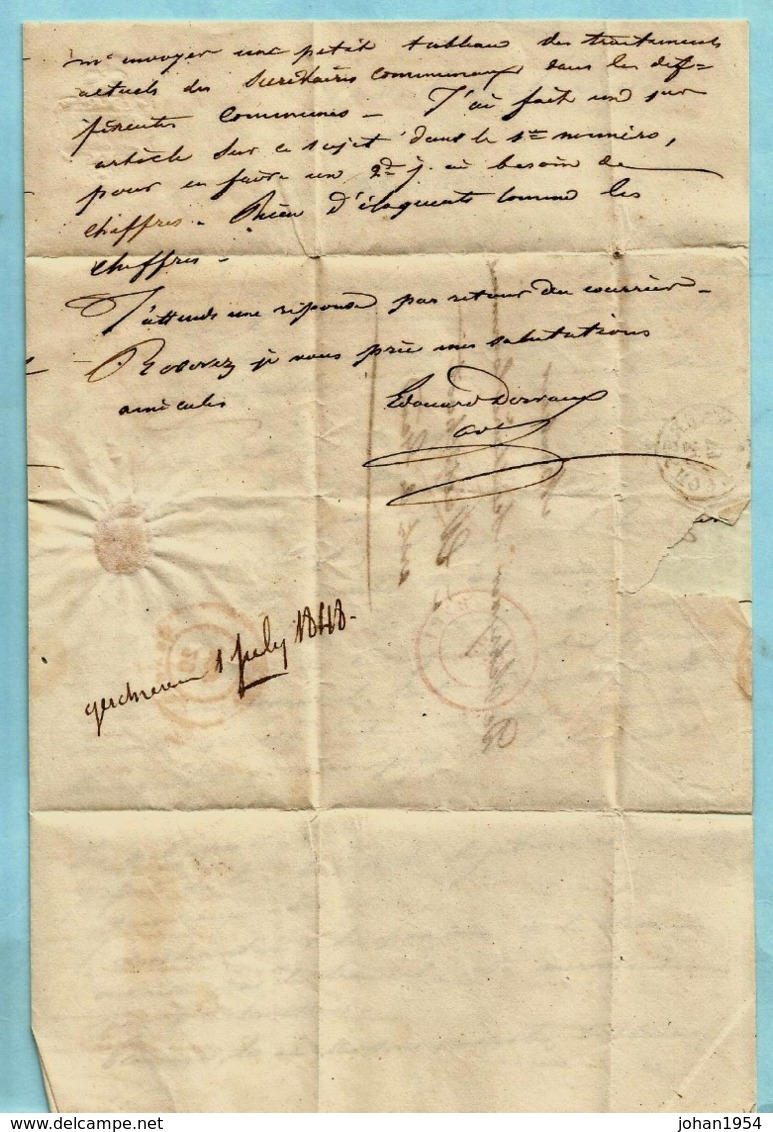 m'envoyer un petit tableau des traitements
actuels des Secrétaires communaux dans les dif=
férentes communes – J'ai fait un
article sur ce sujet dans le 1er numéro,
pour en faire un 2d j'ai besoin de
chiffres. Rien d'éloquents comme les
chiffres –
J'attends une réponse par retour du courrier –
Recevez je vous prie mes salutations
amicales
Edouard
geschreven 1 july 1848.
delcampe.net
johan1954